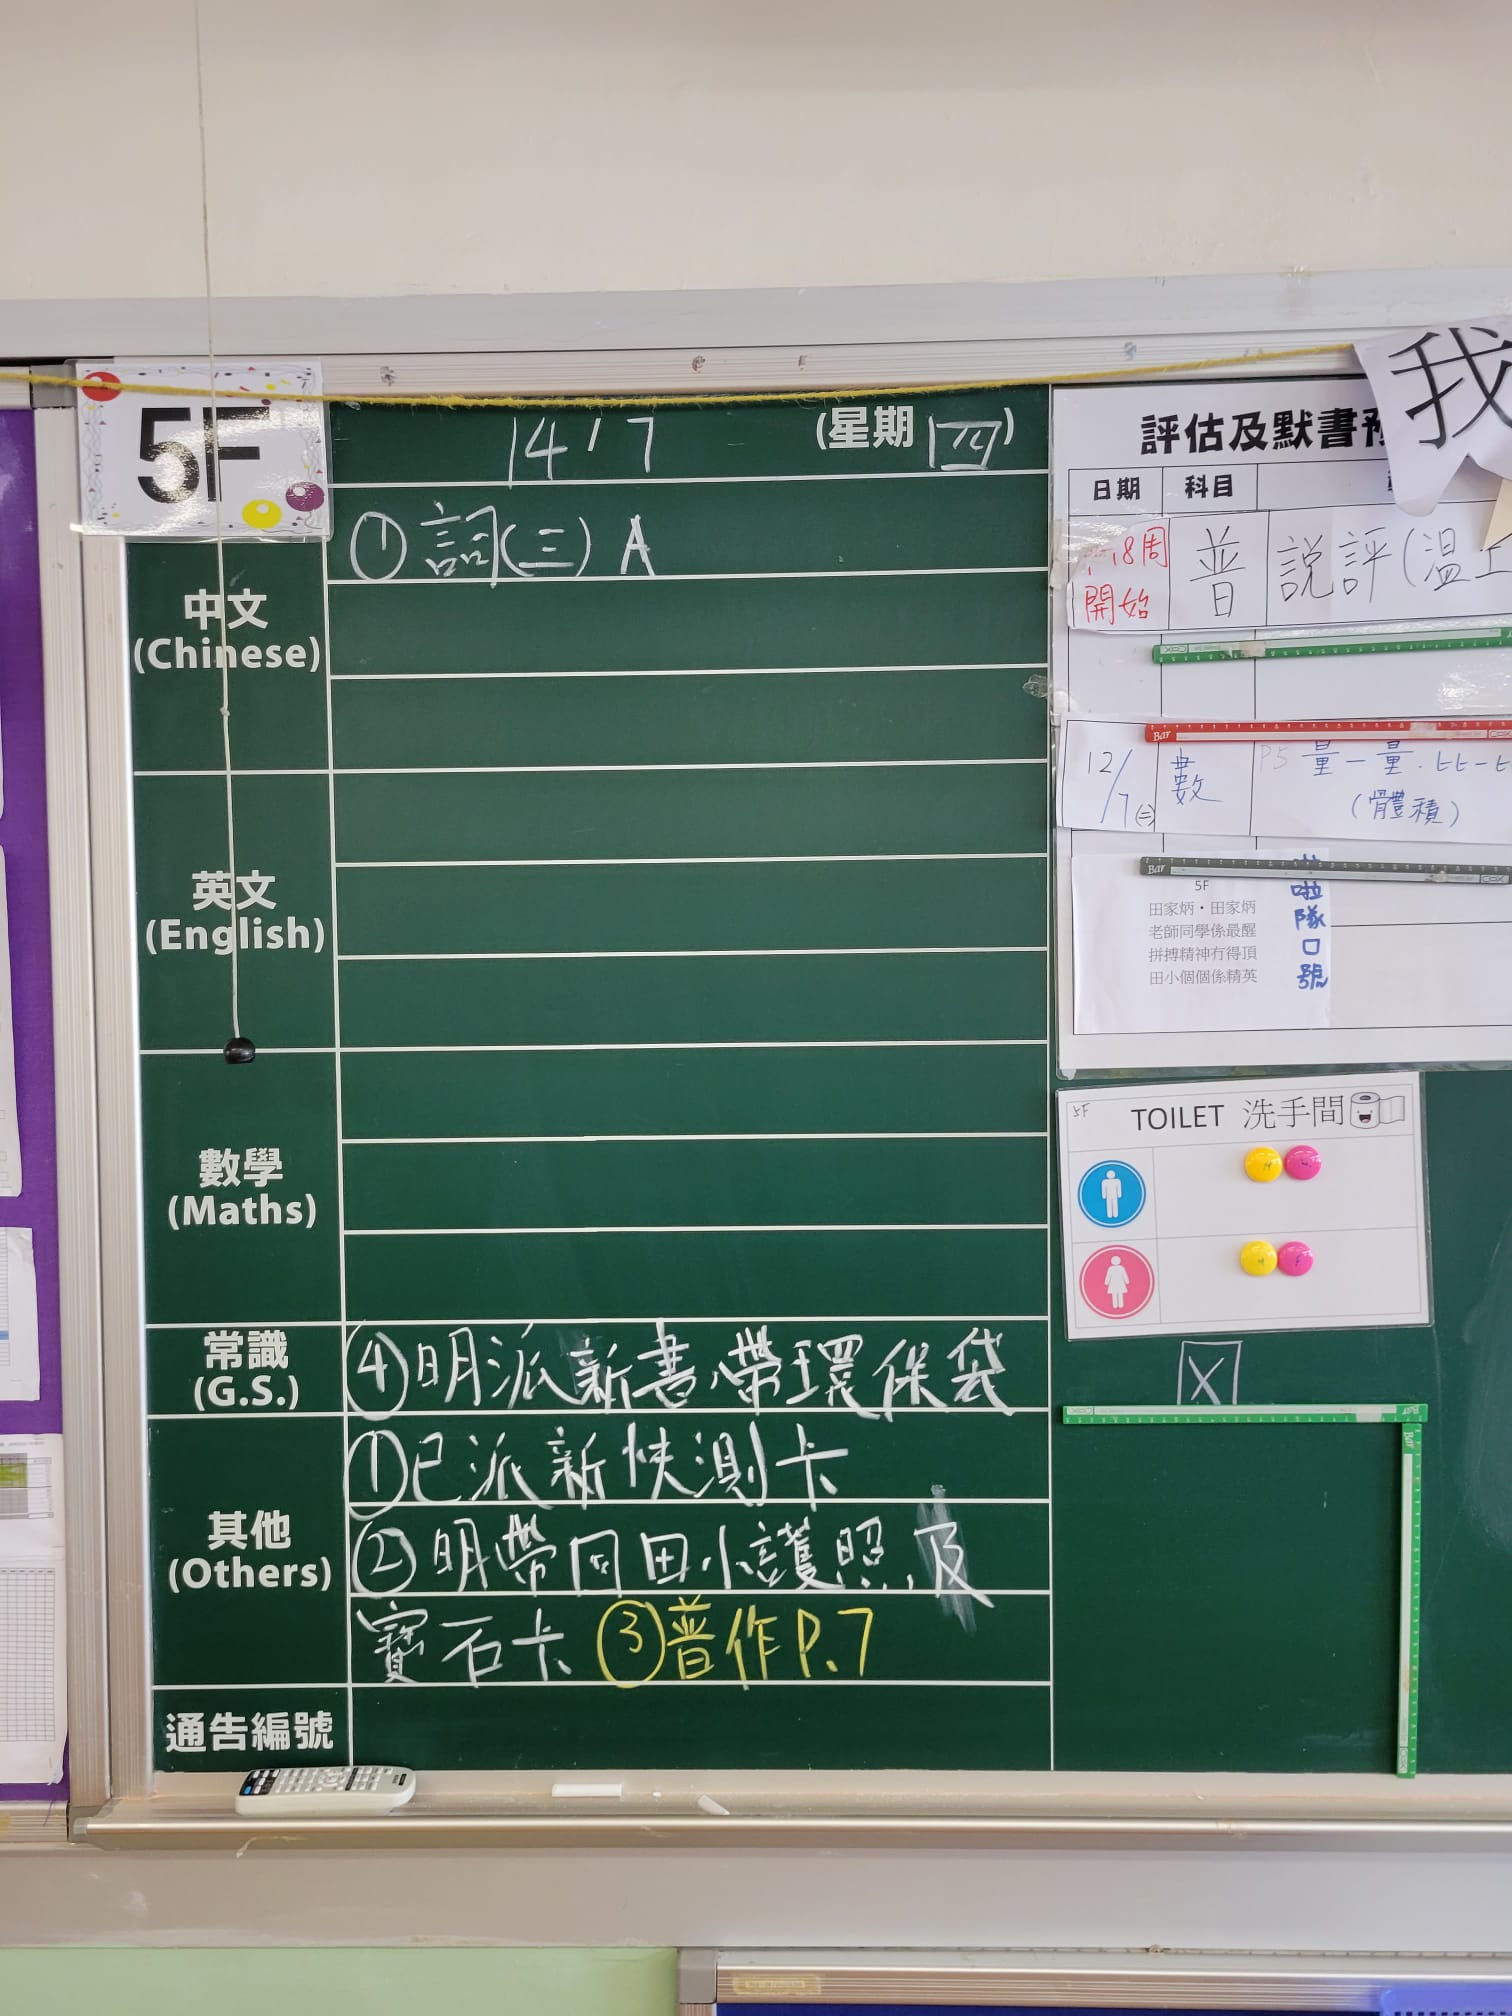 5F
14/7 (星期四)
① 詞(三) A
中文
(Chinese)
英文
(English)
數學
(Maths)
常識
(G.S.)
④明派新書,帶環保袋
其他
(Others)
①已派新快測卡
②明帶回田小護照及
寶石卡 ③普作P.7
通告編號
評估及默書
我
日期 科目
18周
開始
普
說評(温
Bar
12/7(二) 數 P5 量一量.比一
(體積)
Bar
5F
田家炳・田家炳
老師同學係最醒
拼搏精神冇得頂
田小個個係精英
啦隊口號
5F
TOILET 洗手間
X
Bar
Bar